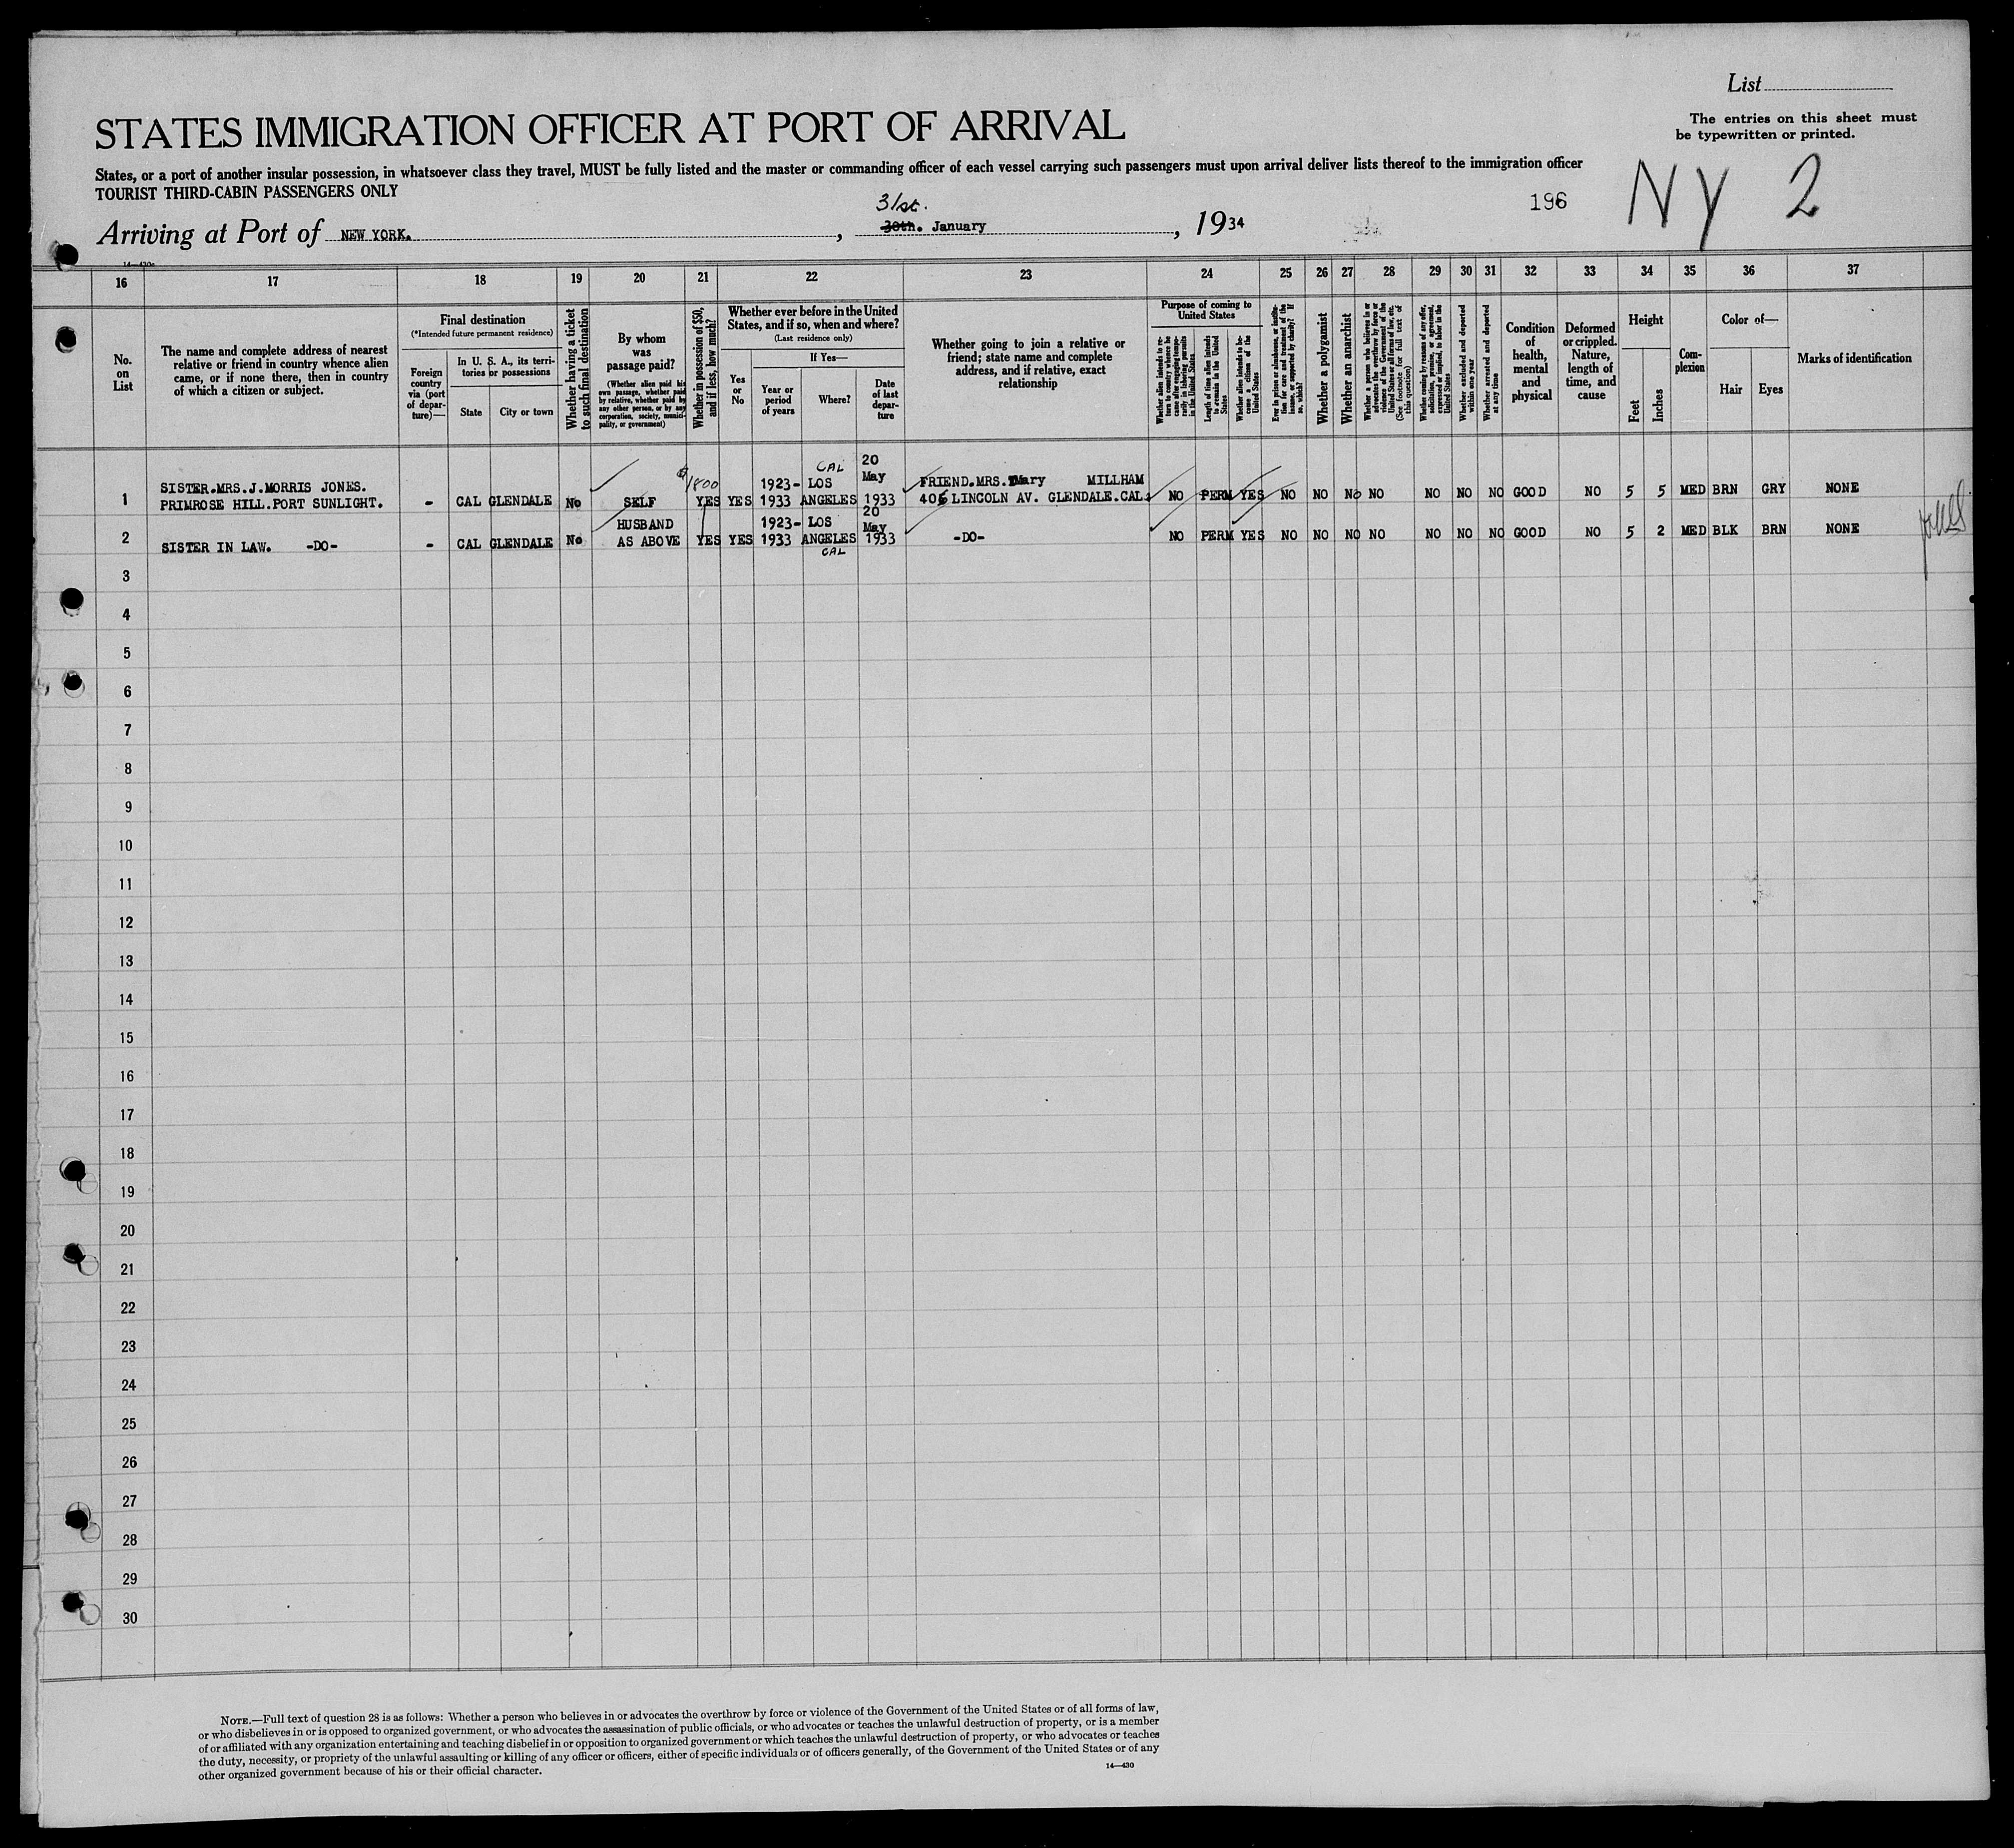 List
STATES IMMIGRATION OFFICER AT PORT OF ARRIVAL
The entries on this sheet must
be typewritten or printed.
States, or a port of another insular possession, in whatsoever class they travel, MUST be fully listed and the master or commanding officer of each vessel carrying such passengers must upon arrival deliver lists thereof to the immigration officer
TOURIST THIRD-CABIN PASSENGERS ONLY
196
NY 2
31st.
Arriving at Port of NEW YORK. , 30th. January , 1934
16 17 18 19 20 21 22 23 24 25 26 27 28 29 30 31 32 33 34 35 36 37
No.
on
List
The name and complete address of nearest
relative or friend in country whence alien
came, or if none there, then in country
of which a citizen or subject.
Final destination
(*Intended future permanent residence)
Foreign
country
via (port
of depar-
ture)—
In U. S. A., its terri-
tories or possessions
State
City or town
Whether having a ticket
to such final destination
By whom
was
passage paid?
(Whether alien paid his
own passage, whether paid
by relative, whether paid by
any other person, or by any
corporation, society, munici-
pality, or government)
Whether in possession of $50,
and if less, how much?
Whether ever before in the United
States, and if so, when and where?
(Last residence only)
Yes
or
No
If Yes—
Year or
period
of years
Where?
Date
of last
depar-
ture
Whether going to join a relative or
friend; state name and complete
address, and if relative, exact
relationship
Purpose of coming to
United States
Whether alien intends to re-
turn to country whence he
came after engaging tempo-
rarily in laboring pursuits
in the United States
Length of time alien intends
to remain in the United
States
Whether alien intends to be-
come a citizen of the
United States
Ever in prison or almshouse, or institu-
tion for care and treatment of the
insane, or supported by charity? If
so, which?
Whether a polygamist
Whether an anarchist
Whether a person who believes in or
advocates the overthrow by force or
violence of the Government of the
United States or all forms of law, etc.
(See footnote for full text of
this question)
Whether coming by reason of any offer,
solicitation, promise, or agreement,
expressed or implied, to labor in the
United States
Whether excluded and deported
within one year
Whether arrested and deported
at any time
Condition
of
health,
mental
and
physical
Deformed
or crippled.
Nature,
length of
time, and
cause
Height
Feet
Inches
Com-
plexion
Color of—
Hair
Eyes
Marks of identification
CAL 20
SISTER.MRS.J.MORRIS JONES. $1800 1923- LOS May FRIEND.MRS. Mary MILLHAM
1 PRIMROSE HILL.PORT SUNLIGHT. - CAL GLENDALE No SELF YES YES 1933 ANGELES 1933 406 LINCOLN AV. GLENDALE.CAL. NO PERM YES NO NO No NO NO NO NO GOOD NO 5 5 MED BRN GRY NONE
HUSBAND 1923- LOS 20 May
2 SISTER IN LAW. -DO- - CAL GLENDALE No AS ABOVE YES YES 1933 ANGELES 1933 -DO- NO PERM YES NO NO NO NO NO NO NO GOOD NO 5 2 MED BLK BRN NONE
CAL
3
4
5
6
7
8
9
10
11
12
13
14
15
16
17
18
19
20
21
22
23
24
25
26
27
28
29
30
NOTE.—Full text of question 28 is as follows: Whether a person who believes in or advocates the overthrow by force or violence of the Government of the United States or of all forms of law,
or who disbelieves in or is opposed to organized government, or who advocates the assassination of public officials, or who advocates or teaches the unlawful destruction of property, or is a member
of or affiliated with any organization entertaining and teaching disbelief in or opposition to organized government or which teaches the unlawful destruction of property, or who advocates or teaches
the duty, necessity, or propriety of the unlawful assaulting or killing of any officer or officers, either of specific individuals or of officers generally, of the Government of the United States or of any
other organized government because of his or their official character.
14—430